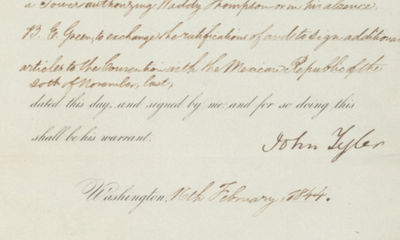 a Power authorizing Waddy Thompson or in his absence
B. E. Green, to exchange the ratifications of and to sign additional
articles to the Convention with the Mexican Republic of the
20th of November, last,
dated this day, and signed by me and for so doing this
shall be his warrant.
John Tyler
Washington, 16th February, 1844.